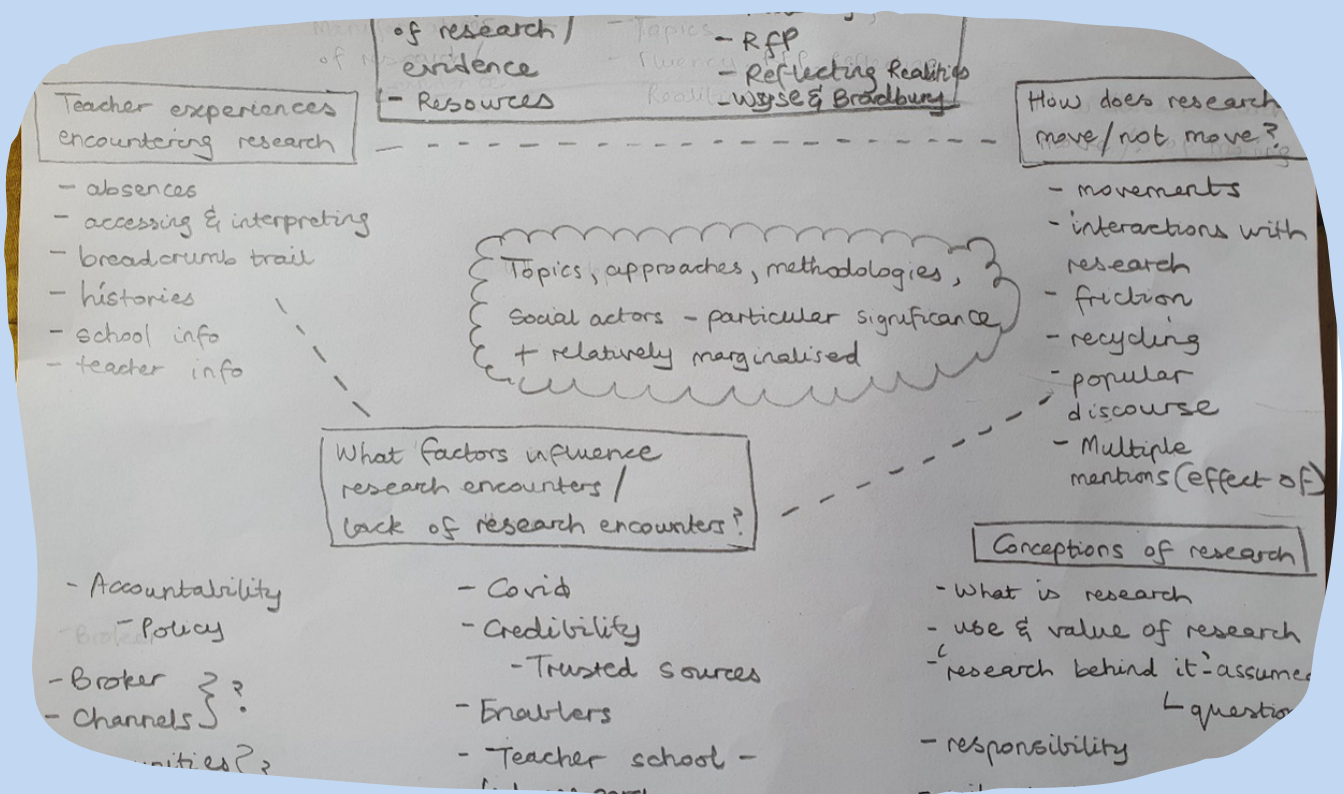 of research /
evidence
- Resources
- RfP
- Reflecting Realities
- Wyse & Bradbury
Teacher experiences
encountering research
- absences
- accessing & interpreting
- breadcrumb trail
- histories
- school info
- teacher info
How does research
move/not move?
- movements
- interactions with
research
- friction
- recycling
- popular
discourse
- Multiple
mentions (effect of)
Topics, approaches, methodologies,
social actors - particular significance
+ relatively marginalised
What factors influence
research encounters /
lack of research encounters?
- Accountability
- Policy
- Broker
- Channels } ?
- Covid
- Credibility
- Trusted sources
- Enablers
- Teacher school -
Conceptions of research
- What is research
- use & value of research
- 'research behind it' - assume
question
- responsibility